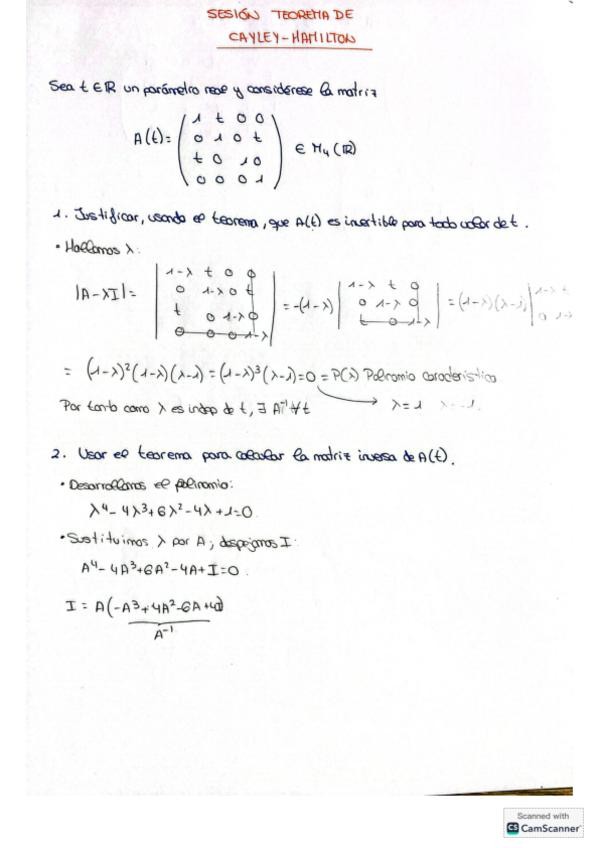 SESIÓN TEOREMA DE
CAYLEY-HAMILTON
Sea t ∈ ℝ un parámetro real y considérese la matriz
A(t) = ( 1 t 0 0
0 1 0 t
t 0 1 0
0 0 0 1 ) ∈ M₄(ℝ)
1. Justificar, usando el teorema, que A(t) es invertible para todo valor de t.
• Hallamos λ:
|A-λI| = | 1-λ t 0 0
0 1-λ 0 t
t 0 1-λ 0
0 0 0 1-λ | = -(1-λ) | 1-λ t 0
0 1-λ 0
t 0 1-λ | = (1-λ)(λ-1) | 1-λ t
0 1-λ
= (1-λ)²(1-λ)(λ-1) = (1-λ)³(λ-1) = 0 = P(λ) Polinomio característico
Por tanto como λ es indep de t, ∃ A⁻¹ ∀t → λ=1
2. Usar el teorema para calcular la matriz inversa de A(t).
• Desarrollamos el polinomio:
λ⁴ - 4λ³ + 6λ² - 4λ + 1 = 0
• Sustituimos λ por A; despejamos I:
A⁴ - 4A³ + 6A² - 4A + I = 0
I = A(-A³ + 4A² - 6A + 4I)
A⁻¹
Scanned with
CS CamScanner